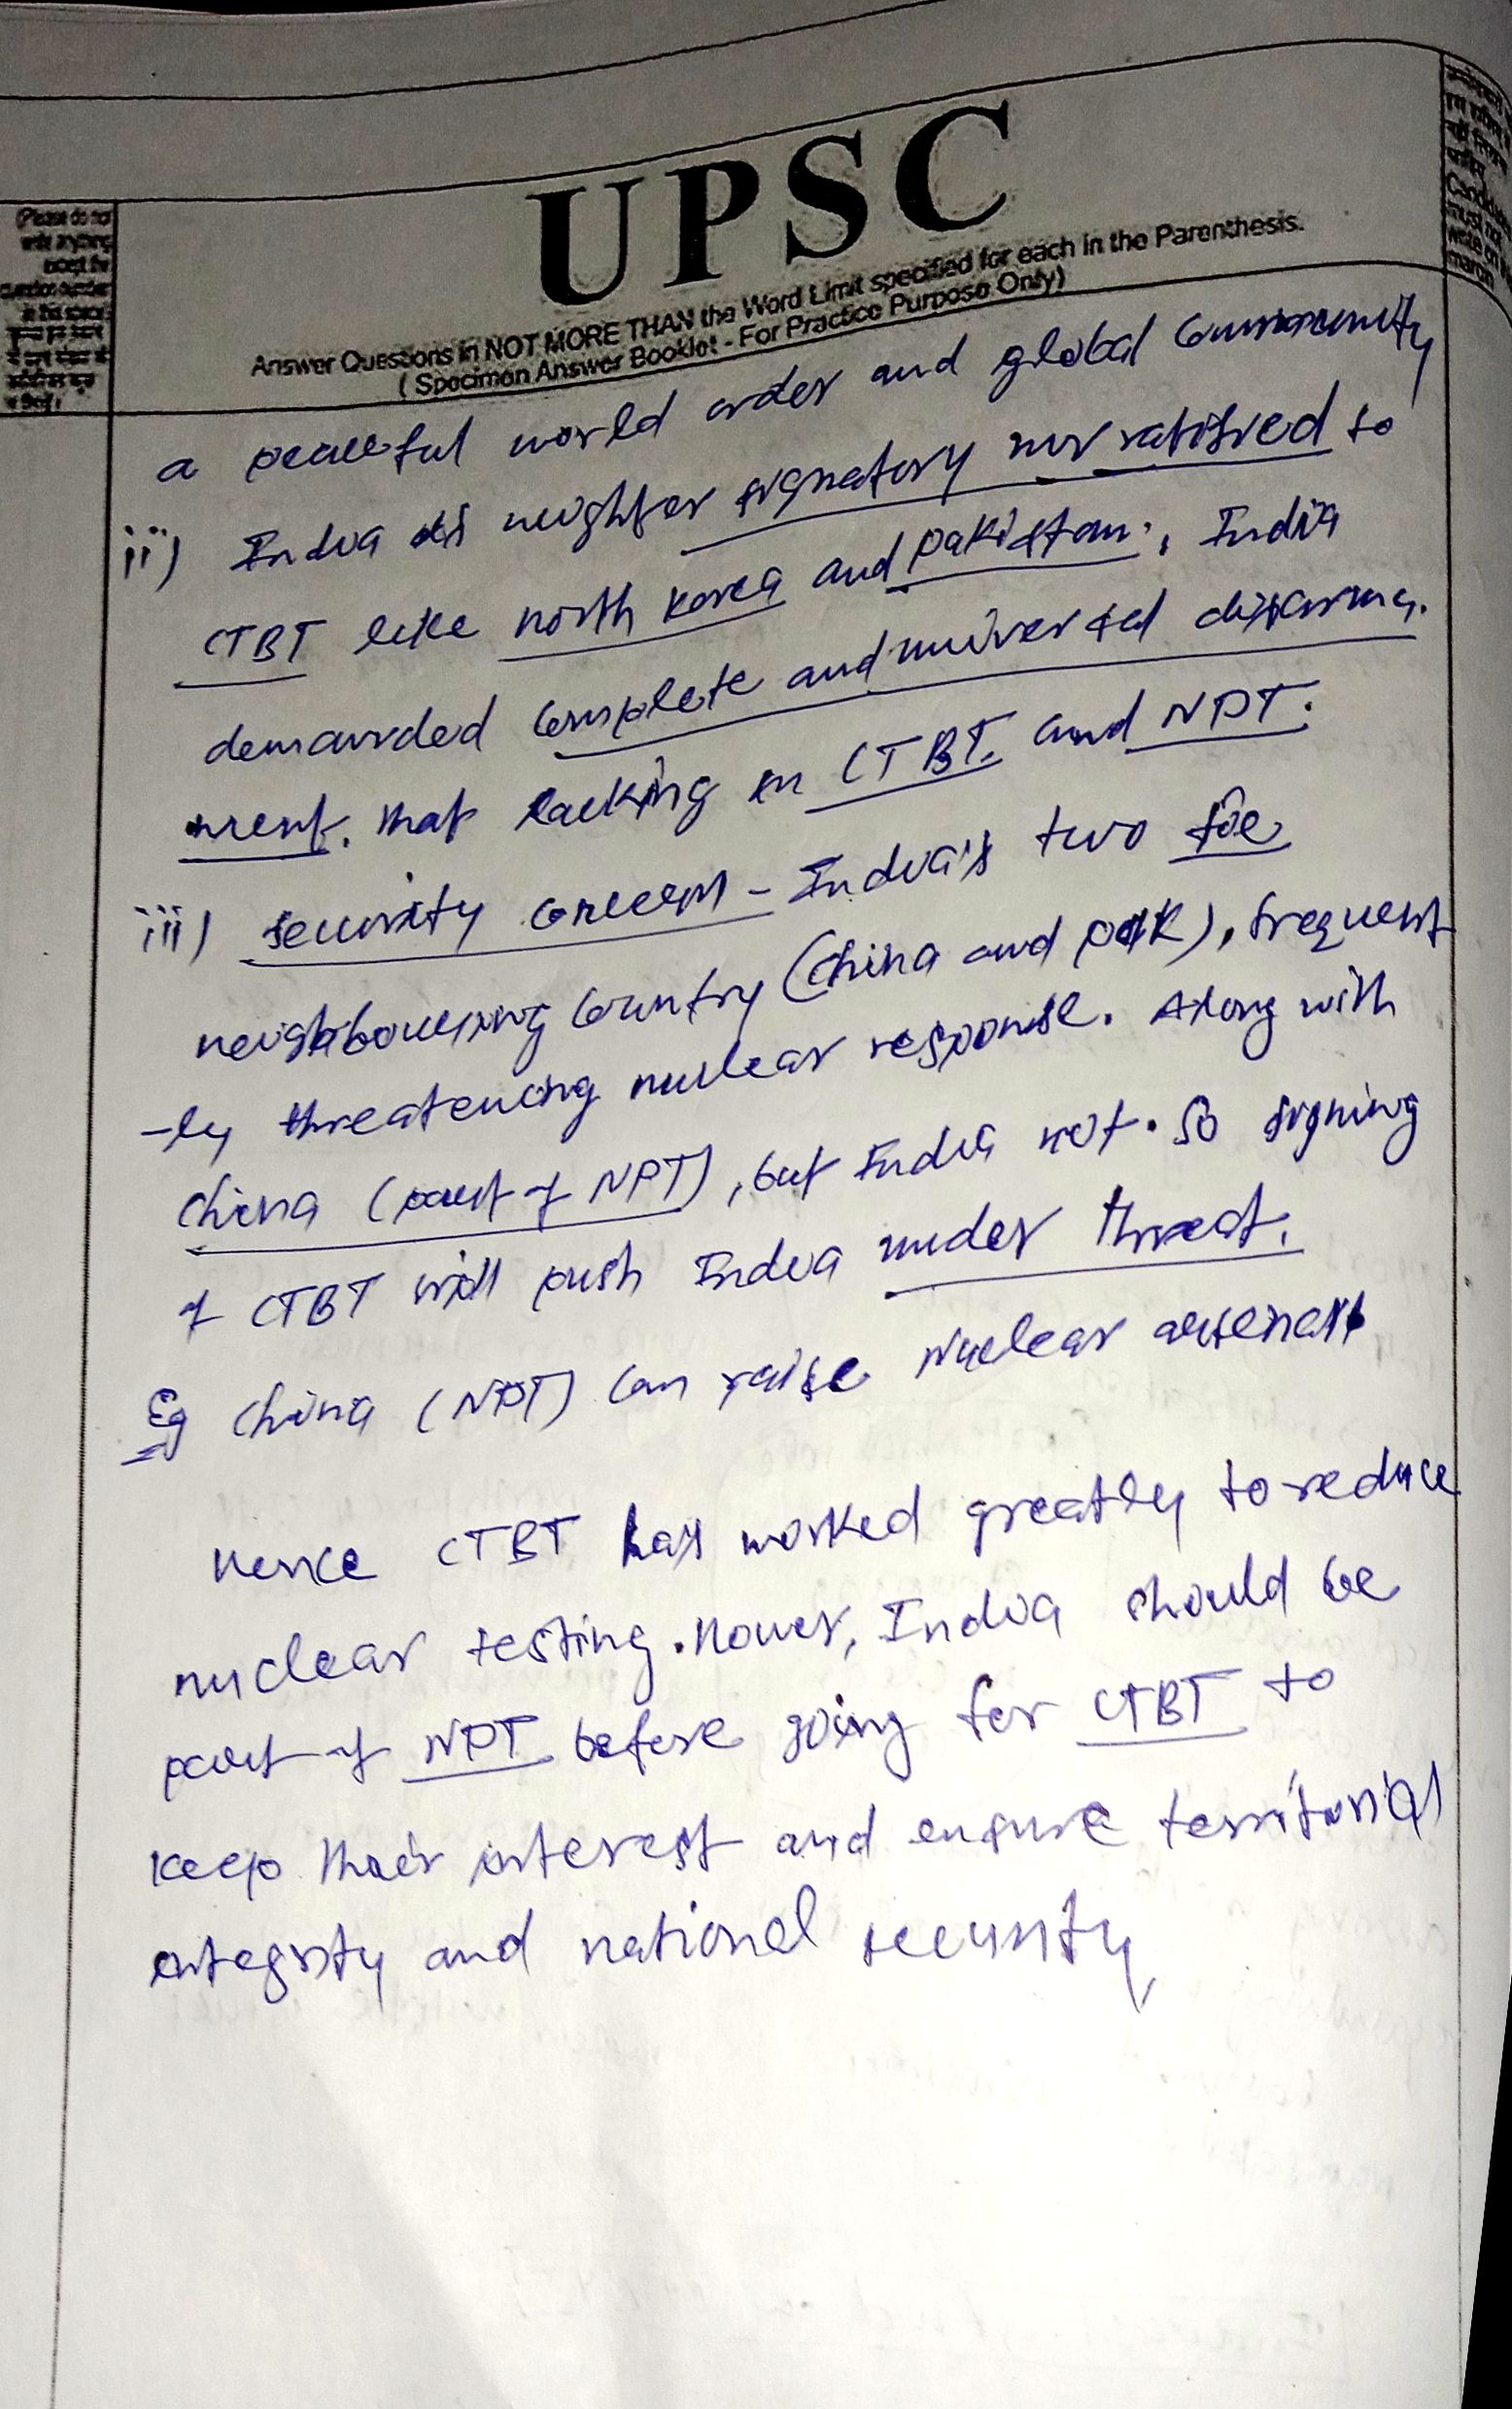 UPSC
Answer Questions in NOT MORE THAN the Word Limit specified for each in the Parenthesis.
( Specimen Answer Booklet - For Practice Purpose Only)
(Please do not
write anything
except the
question number
in this space)
Candidates
must not
write on this
margin
a peaceful world order and global community
ii) India is neighter signatory nor ratified to
CTBT like north korea and pakistan., India
demanded complete and universal disarma-
ment. that lacking in CTBT. and NPT.
iii) security concern - India's two foe
neighbouring country (China and pak), frequent
-ly threatening nuclear response. Along with
China (part of NPT), but India not. So signing
of CTBT will push India under threat.
Eg China (NPT) can raise Nuclear arsenals
Hence CTBT has worked greatly to reduce
nuclear testing. However, India should be
part of NPT before going for CTBT to
keep their interest and ensure territorial
integrity and national security